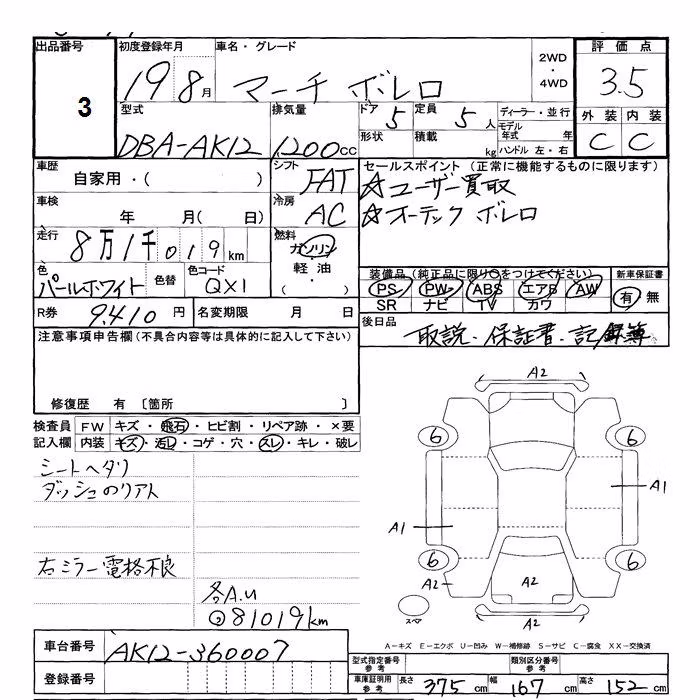 出品番号 初度登録年月 車名・グレード 2WD・4WD 評価点
3 19 8月 マーチ ボレロ 3.5
型式 排気量 ドア 5 定員 5人 ディーラー・並行 外装 内装
DBA-AK12 1200cc 形状 積載 kg モデル年式 年 C C
ハンドル 左・右
車歴 シフト セールスポイント (正常に機能するものに限ります)
自家用・( ) FAT ☆ユーザー買取
車検 冷房 ☆オーテック ボレロ
年 月( 日) AC
走行 燃料
8万1千019km ガソリン・軽油・( )
色 色替 色コード 装備品 (純正品に限り○をつけてください) 新車保証書
パールホワイト QX1 PS PW ABS エアB AW 有・無
SR ナビ TV カワ
R券 9.410円 名変期限 月 日 後日品
取説・保証書・記録簿
注意事項申告欄(不具合内容等は具体的に記入して下さい)
修復歴 有 〔箇所 〕
検査員記入欄 FW キズ・飛石・ヒビ割・リペア跡・×要
内装 キズ・汚レ・コゲ・穴・スレ・キレ・破レ
シートヘタリ
ダッシュのリアト
右ミラー電格不良
各A.U
81019km
A2
6 6
A1
A1
6 6
A2 A2
スペア
A2
A-キズ E-エクボ U-凹み W-補修跡 S-サビ C-腐食 XX-交換済
車台番号 AK12-360007
登録番号
型式指定番号 参考 類別区分番号 参考
車庫証明用 参考 長さ 375cm 幅 167cm 高さ 152cm